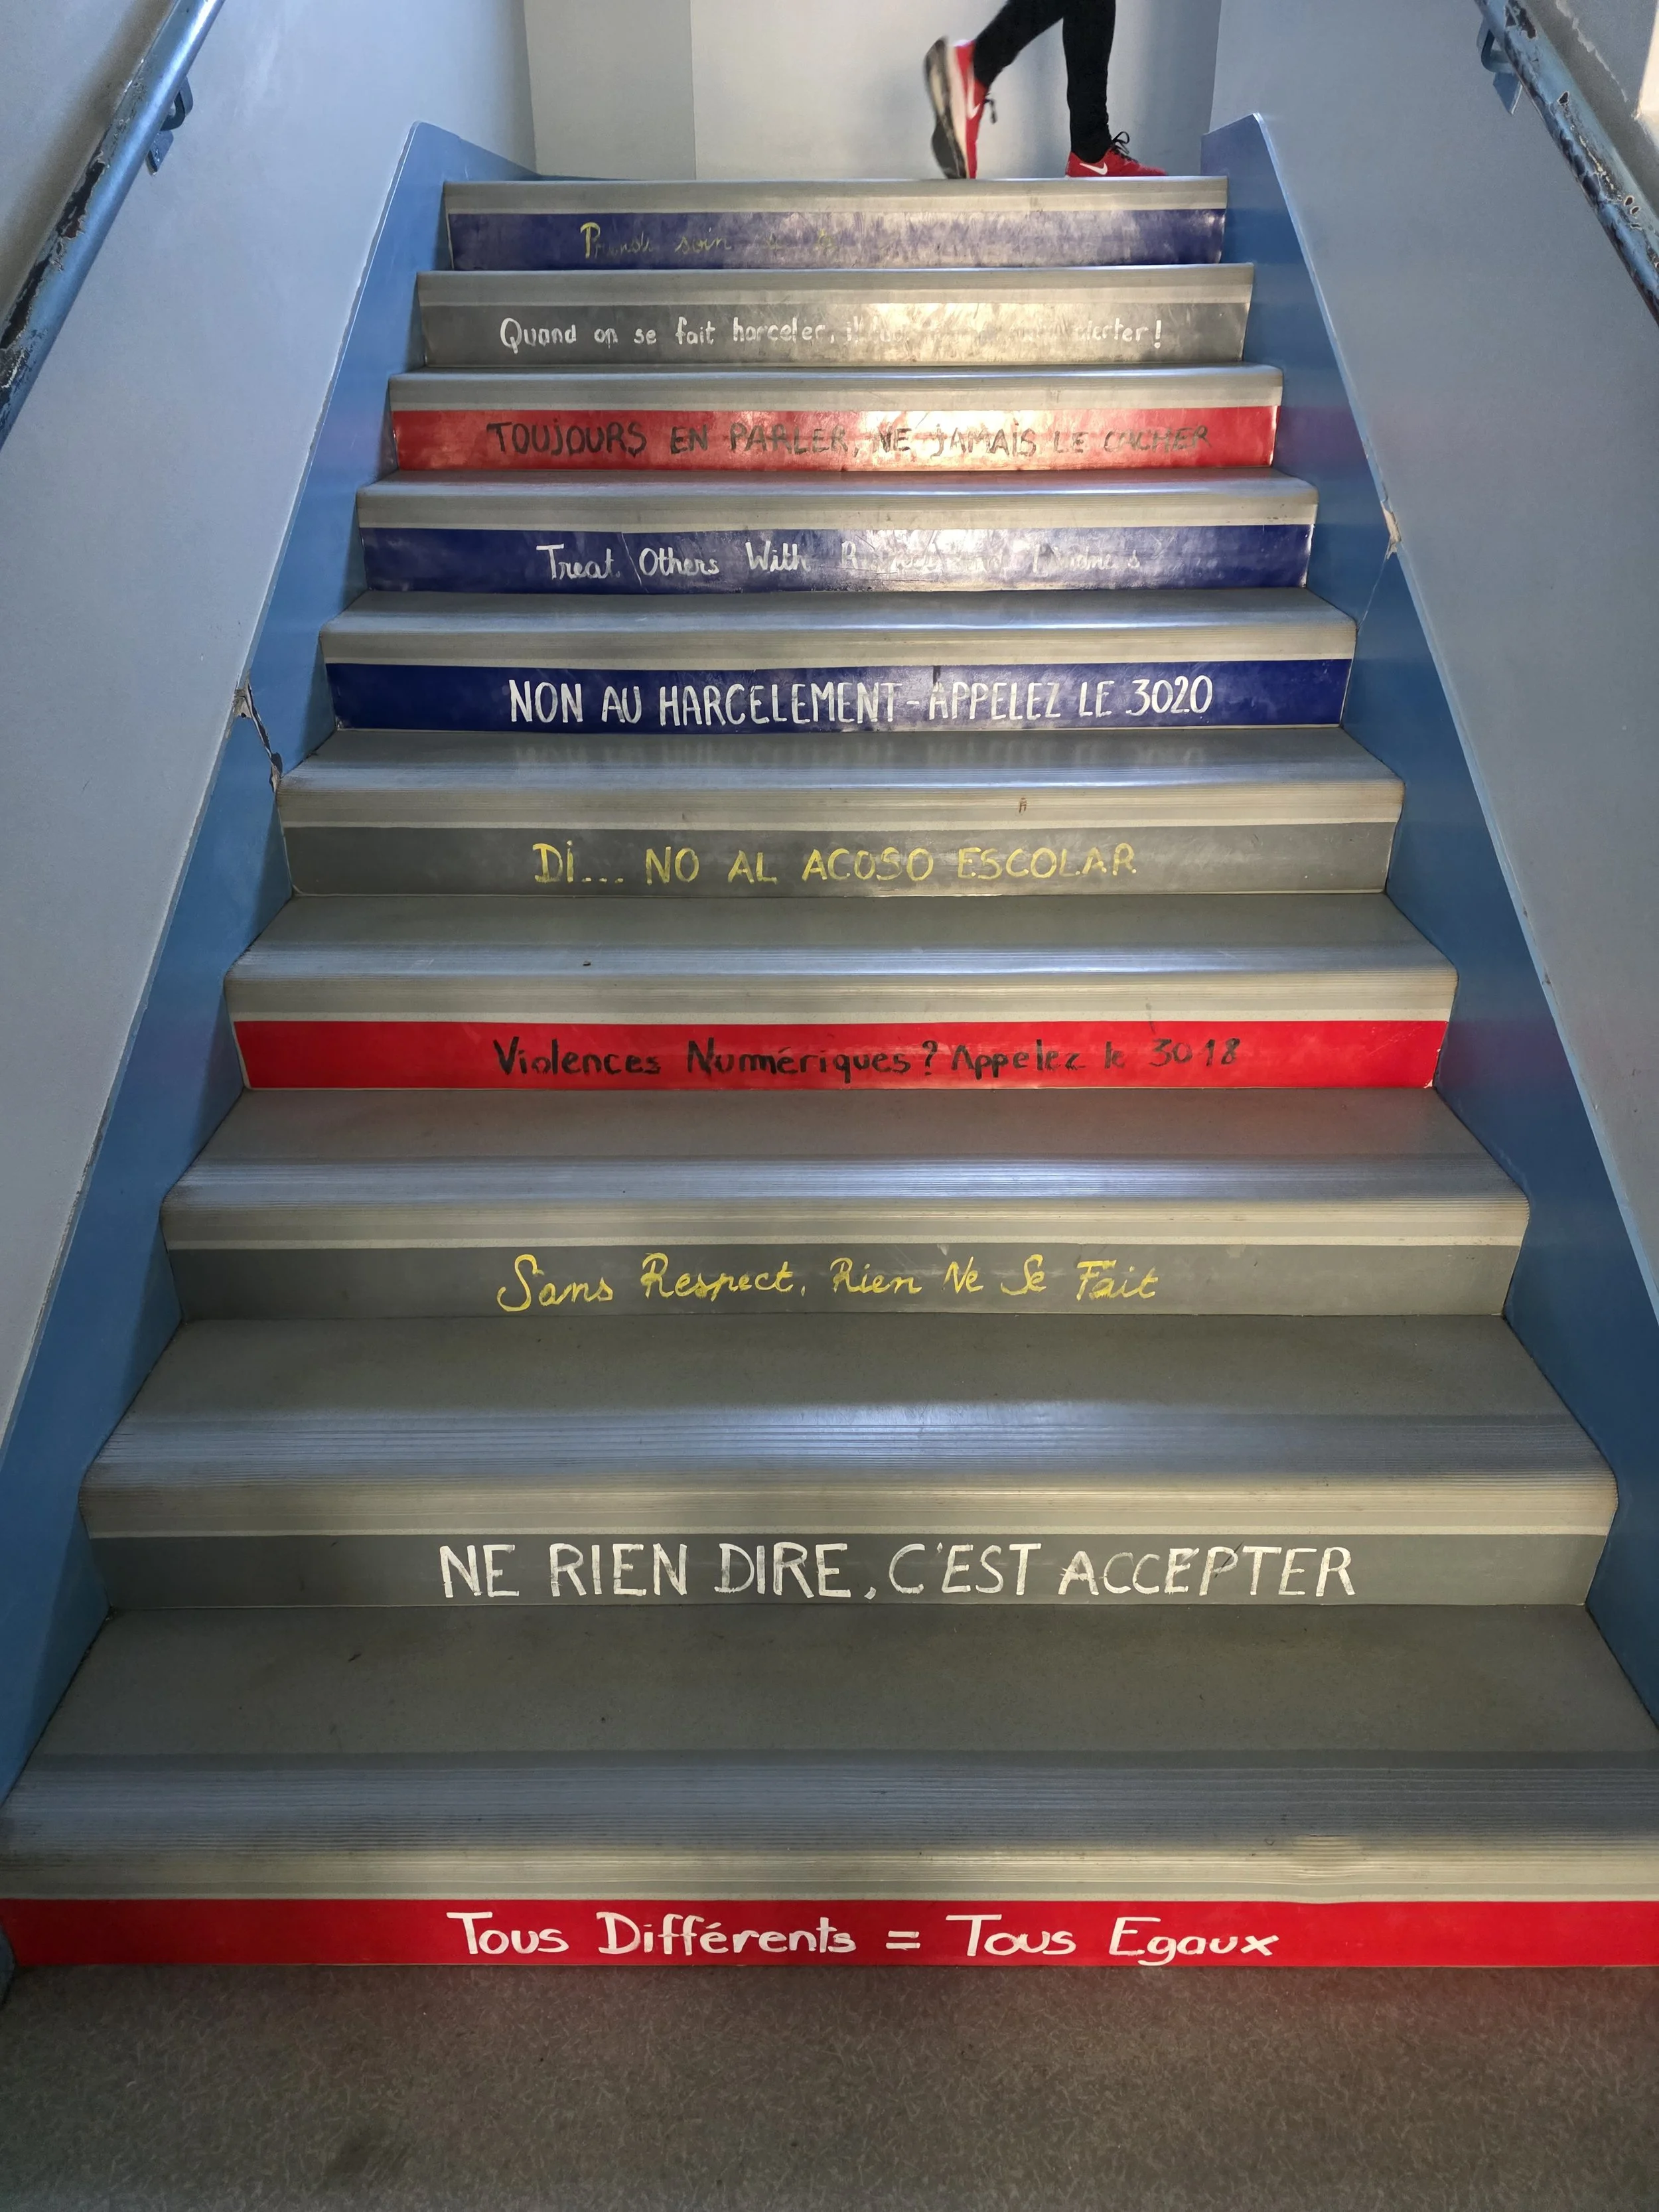 soin
Quand on se fait harceler, alerter!
TOUJOURS EN PARLER, NE JAMAIS LE CACHER
Treat Others With
NON AU HARCELEMENT - APPELEZ LE 3020
Di... NO AL ACOSO ESCOLAR
Violences Numériques? Appelez le 3018
Sans Respect, Rien Ne Se Fait
NE RIEN DIRE, C'EST ACCEPTER
Tous Différents = Tous Egaux